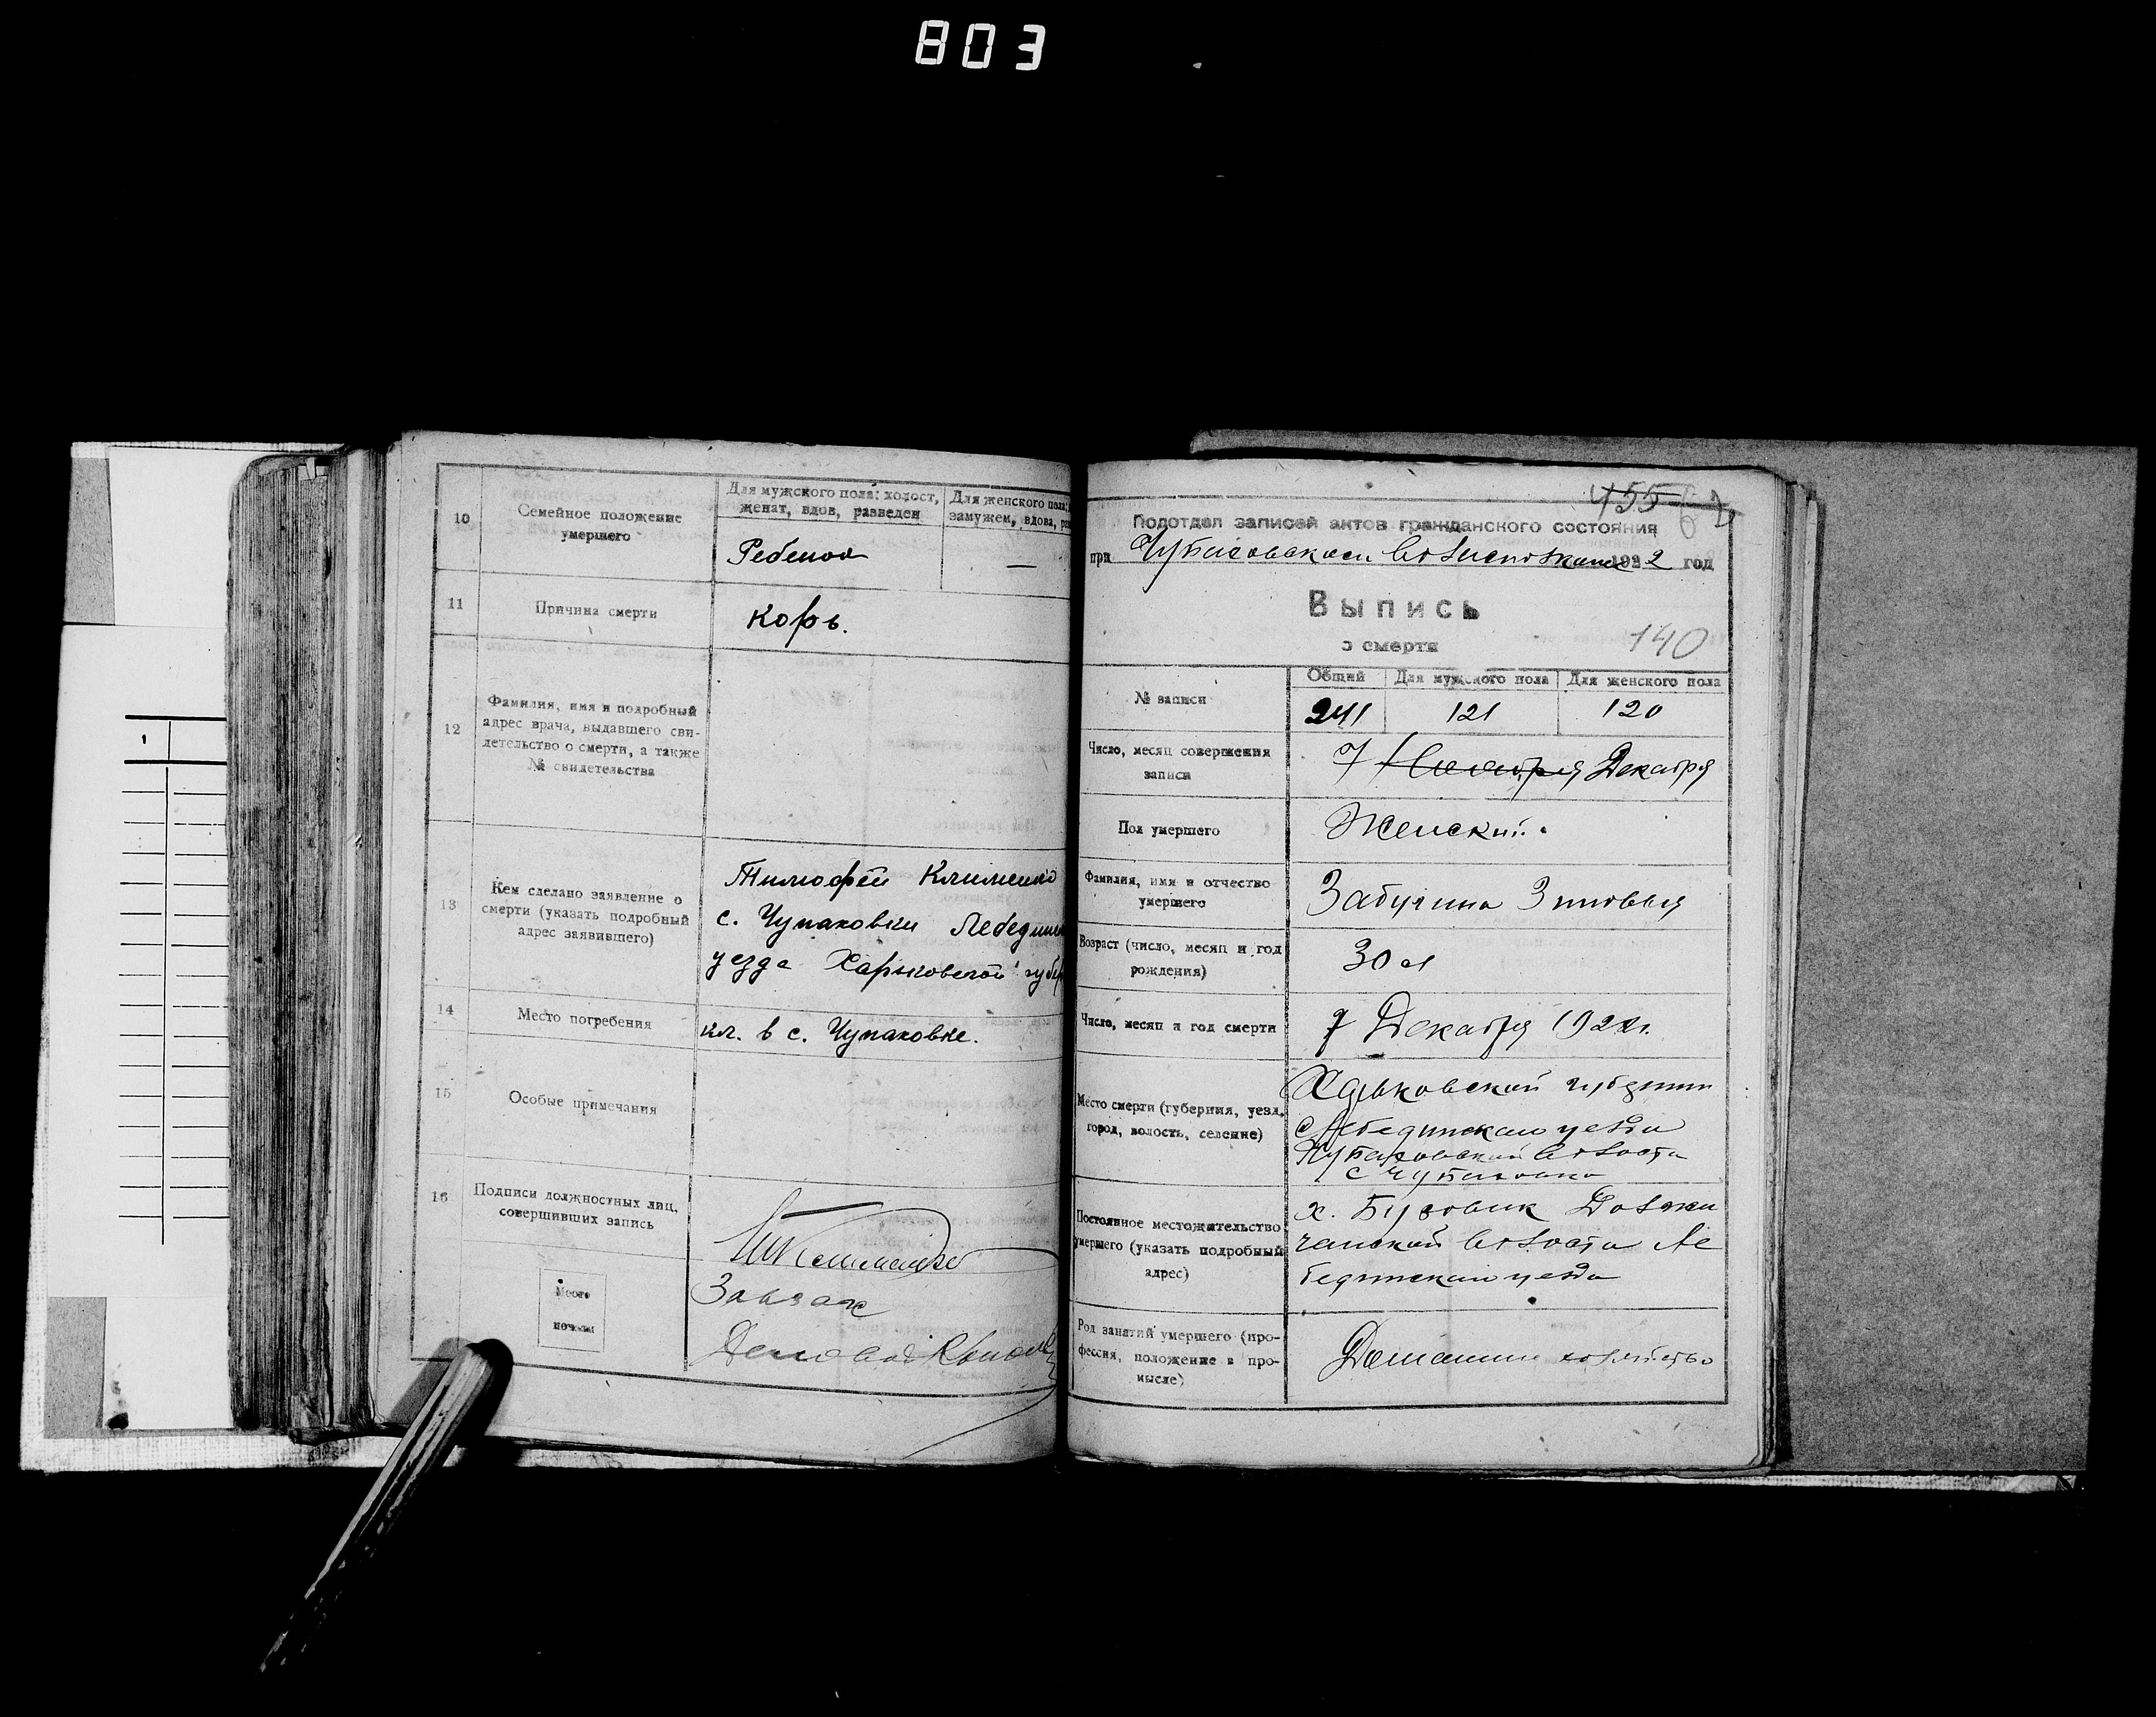 803
10
Семейное положение
умершего
Для мужского пола: холост,
женат, вдов, разведен
Для женского пола:
замужем, вдова,
Ребенок
—
11
Причина смерти
корь.
12
Фамилия, имя и подробный
адрес врача, выдавшего сви-
детельство о смерти, а также
№ свидетельства
13
Кем сделано заявление о
смерти (указать подробный
адрес заявившего)
Тимофей Клименко
с. Чупаховки
уезда Харьковской
14
Место погребения
кл. в с. Чупаховке.
15
Особые примечания
16
Подписи должностных лиц,
совершивших запись
Место
печати
Завзак
455
Подотдел записей актов гражданского состояния
при 1922 год
Выпись
о смерти
140
№ записи
Общий
Для мужского пола
Для женского пола
241
121
120
Число, месяц совершения
записи
7 Ноября Декабря
Пол умершего
Женский.
Фамилия, имя и отчество
умершего
Зиновья
Возраст (число, месяц и год
рождения)
30 л
Число, месяц и год смерти
7 Декабря 1922г.
Место смерти (губерния, уезд,
город, волость, селение)
Харьковской губернии
Лебединского уезда
волости
с
Постоянное местожительство
умершего (указать подробный
адрес)
х. Должи
ченской волости Ле
бединского уезда
Род занятий умершего (про-
фессия, положение в про-
мысле)
Домашнее хозяйство